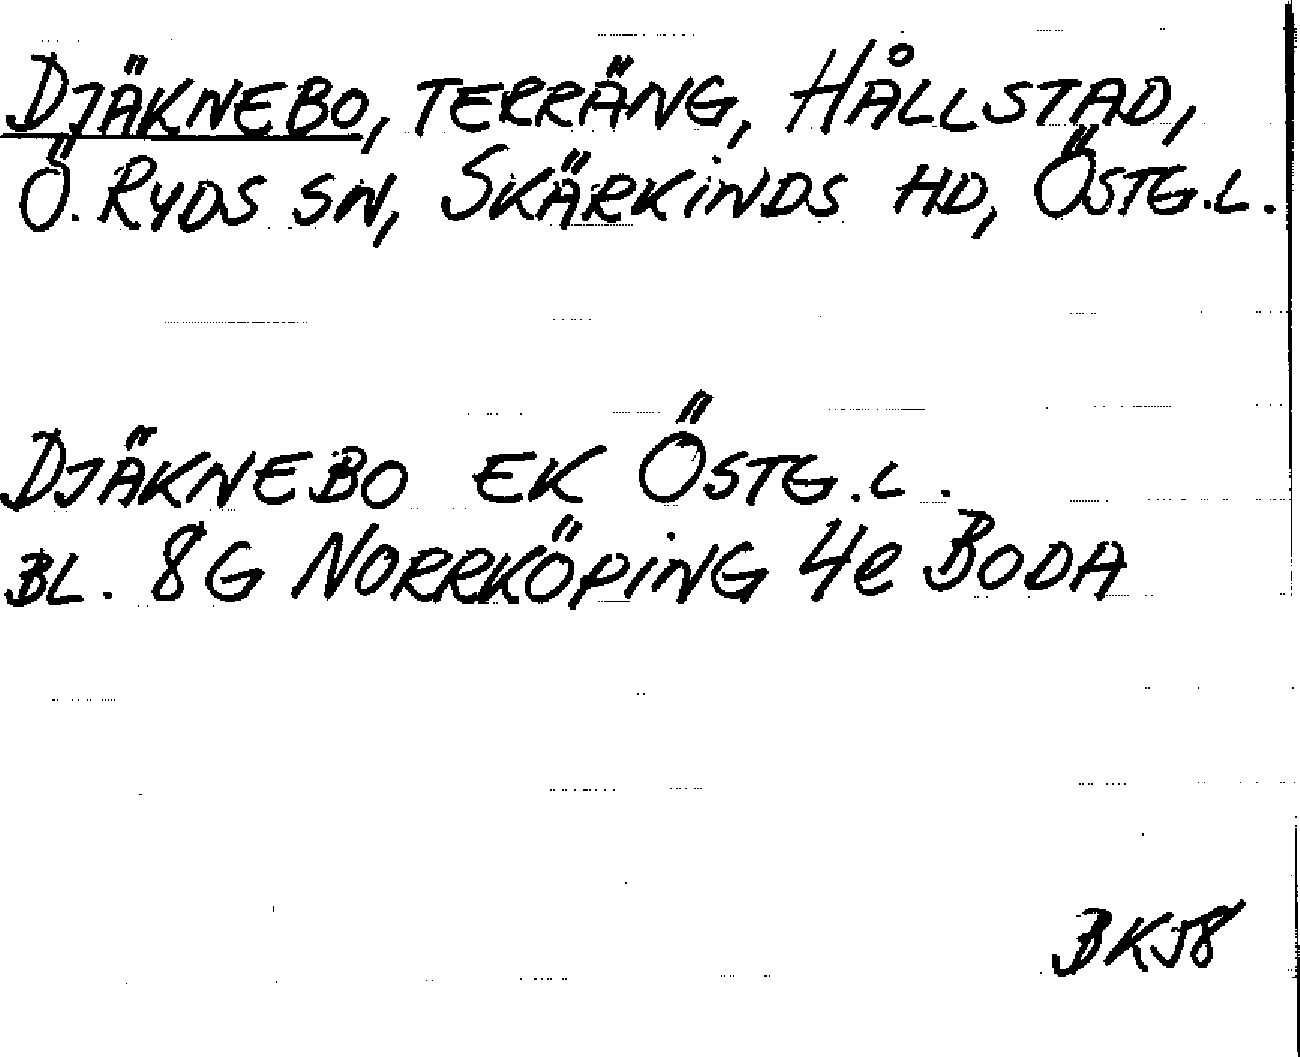 DJÄKNEBO, TERRÄNG, HÅLLSTAD,
Ö. RYDS SN, SKÄRKINDS HD, ÖSTG.L.
DJÄKNEBO EK ÖSTG.L.
BL. 8G NORRKÖPING 4e BODA
BK58